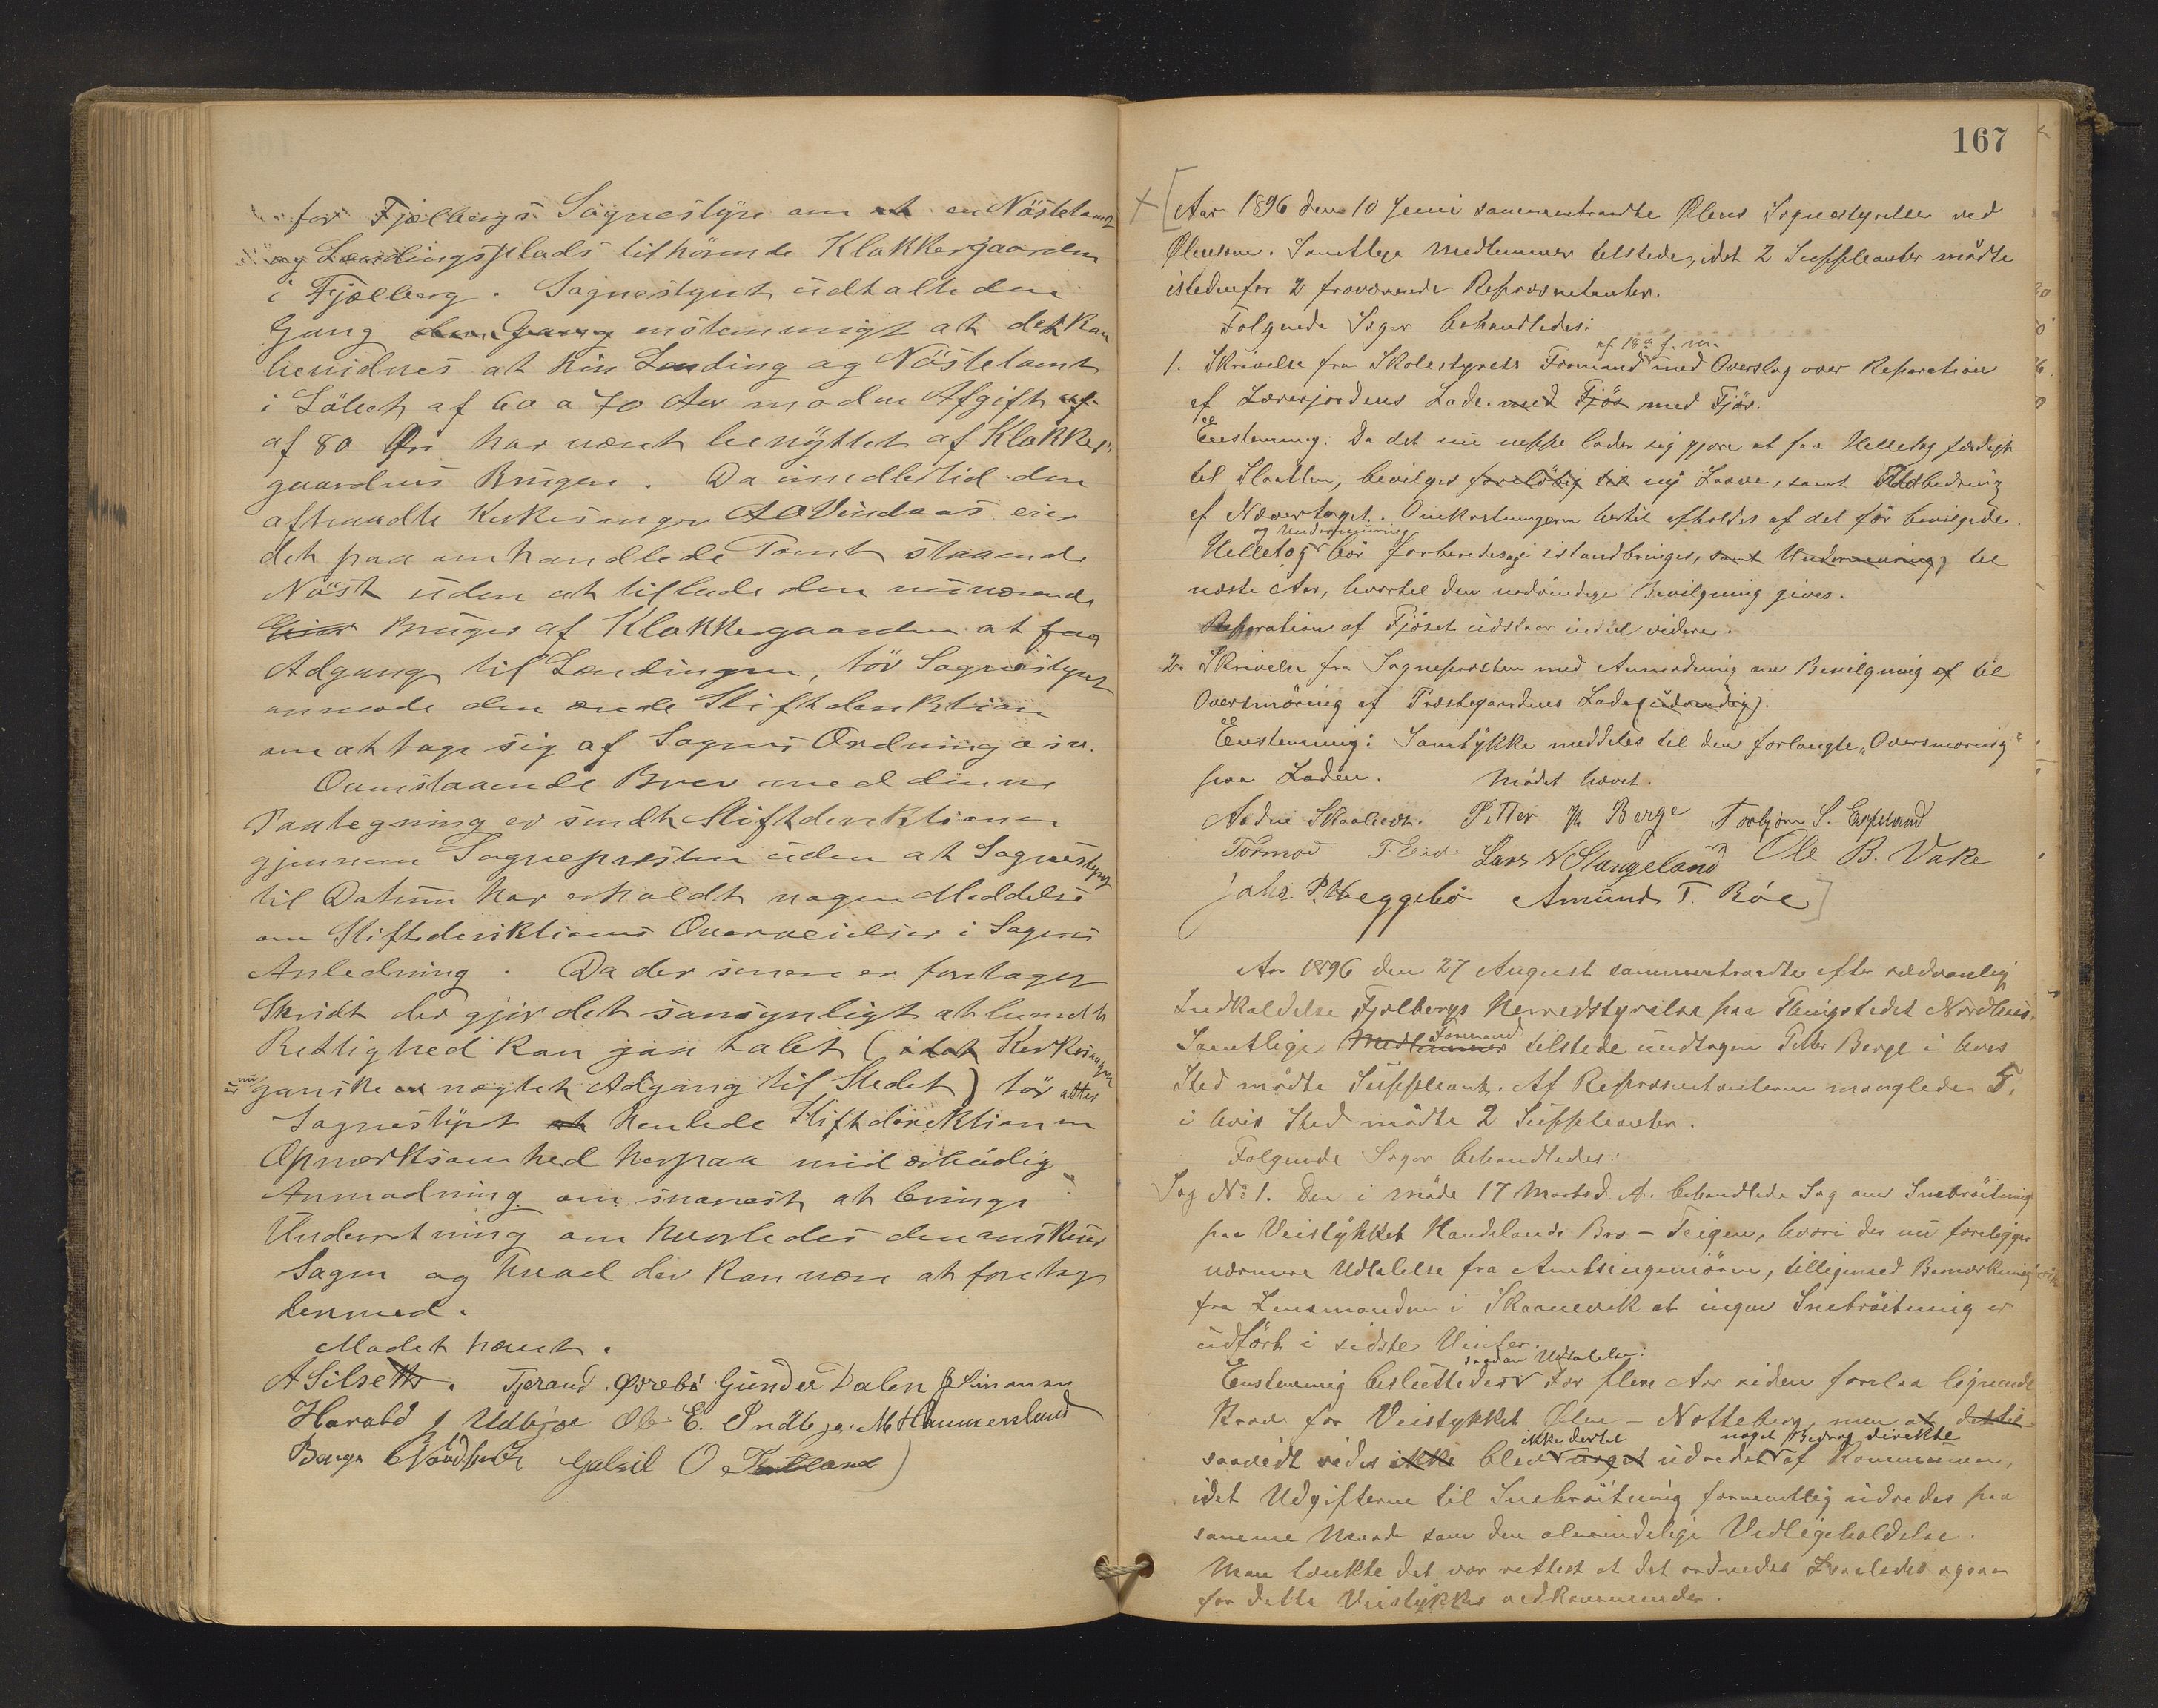 for Fjælbergs Sognestyre om at en Nöstetomt
og Landingsplads tilhörende Klokkergaarden
i Fjælberg. Sognestyret udtalte den
Gang den Gang enstemmigt at det kan
bevidnes at hin Landing og Nöstetomt
i Löbet af 60 a 70 Aar mod en Afgift af
af 80 Öre har været benyttet af Klokker-
gaardens Bruger. Da imedlertid den
afsatte Kirkesanger A O Vindaas eier
det paa omhandlede Tomt staaende
Nöst uden at tillade den nuværende
Eier Bruger af Klokkergaarden at faa
Adgang til Landingen, tör Sognestyret
anmode den ærede Stiftdirektion
om at tage sig af Sagens Ordning osv.
Ovenstaaende Brev med denne
Paategning er sendt Stiftdirektionen
gjennem Sognepresten uden at Sognestyret
til Datum har erholdt nogen Meddelse
om Stiftsdirektionens Overveielser i Sagens
Anledning. Da der senere er foretaget
Skridt der gjör det sansynligt at benævnte
Rettighed kan gaa tabt (idet Kirkesanger
er nu
ganske er nægtet Adgang til Stedet) tör atter
Sognestyret at henlede Stiftdirektionens
Opmærksomhed herpaa med ærbödig
Anmodning om snarest at bringe
Underretning om hvorledes den ansker
Sagen og hvad der kan være at foretage
dermed.
Mödet hævet.
A Silseth. Tjerand Øvrebö Gunder Dalen J Simonsen
Harald J Utbjoe Ole E. Indbjo. M Hammersland
Börge Nordhuch Gabriel O
167
Aar 1896 den 10 Juni sammentraadte Ølens Sognestyrelse ved
Ølensøen. Samtlige Medlemmer tilstede, idet 2 Suppleanter mödte
istedenfor 2 fraværende Repræsentanter.
Følgende Sager behandledes:
af 18de f. m.
1. Skrivelse fra Skolestyrets Formand med Overslag over Reparation
af Lærerjordens Lade med Fjös med Fjös.
Eenstemmig: Da det nu neppe lader sig gjøre at faa Helletag færdigt
til Slaatten, bevilges foreløbig til ny Laave, samt Udbedring
af Nævertaget. Omkostningerne hertil afholdes af det før bevilgede.
og Undermuring
Helletag bör forberedes og istandbringes, samt Undermuring til
næste Aar, hvortil den nødvendige Bevilgning gives.
Reparation af Fjöset udstaar indtil videre.
2. Skrivelse fra Sognepresten med Anmodning om Bevilgning af til
Oversmöring af Præstegaardens Lade (udvendig).
Eenstemmig: Samtykke meddeles til den forlangte "Oversmøring"
paa Laden. Mödet hævet.
Aadne Skaalnes. Petter N Berge Torbjørn S. Espeland
Tormod T. Eide Lars N Stangeland Ole B. Vake
Johs. P. Heggebö Amund T. Böe
Aar 1896 den 27 August sammentraadte efter sædvanlig
Indkaldelse Fjelbergs Herredstyrelse paa Thingstedet Nordhus.
Formænd
Samtlige Medlemmer tilstede undtagen Petter Berge i hvis
Sted mödte Suppleant. Af Repræsentanterne manglede 5,
i hvis Sted mödte 2 Suppleanter.
Følgende Sager behandledes:
Sag No 1. Den i Möde 17 Marts d. A. behandlede Sag om Snebröitning
paa Veistykket Handelands Bro – Teigen, hvori der nu foreligger
nærmere Udtalelse fra Amtsingeniören, tilligemed Bemærkning
fra Lensmanden i Skaanevik at ingen Snebröitning er
udfört i sidste Vinter.
saadan Udtalelse:
Eenstemmig besluttedes For flere Aar siden forelaa lignende
Krav for Veistykket Ølen – Notteberg, men at dertil
ikke dertil noget Bidrag direkte
saavidt vides ikke blev noget udredet af Kommunen,
idet Udgifterne til Snebröitning formentlig udredes paa
samme Maade som den almindelige Vedligeholdelse.
Man tænkte det var rettest at det ordnedes saaledes ogsaa
for dette Veistykkes vedkommende.